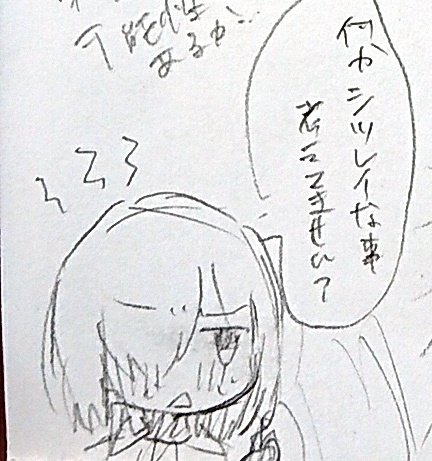 何かシツレイな事
考えてませい？
可能性は
あるか…